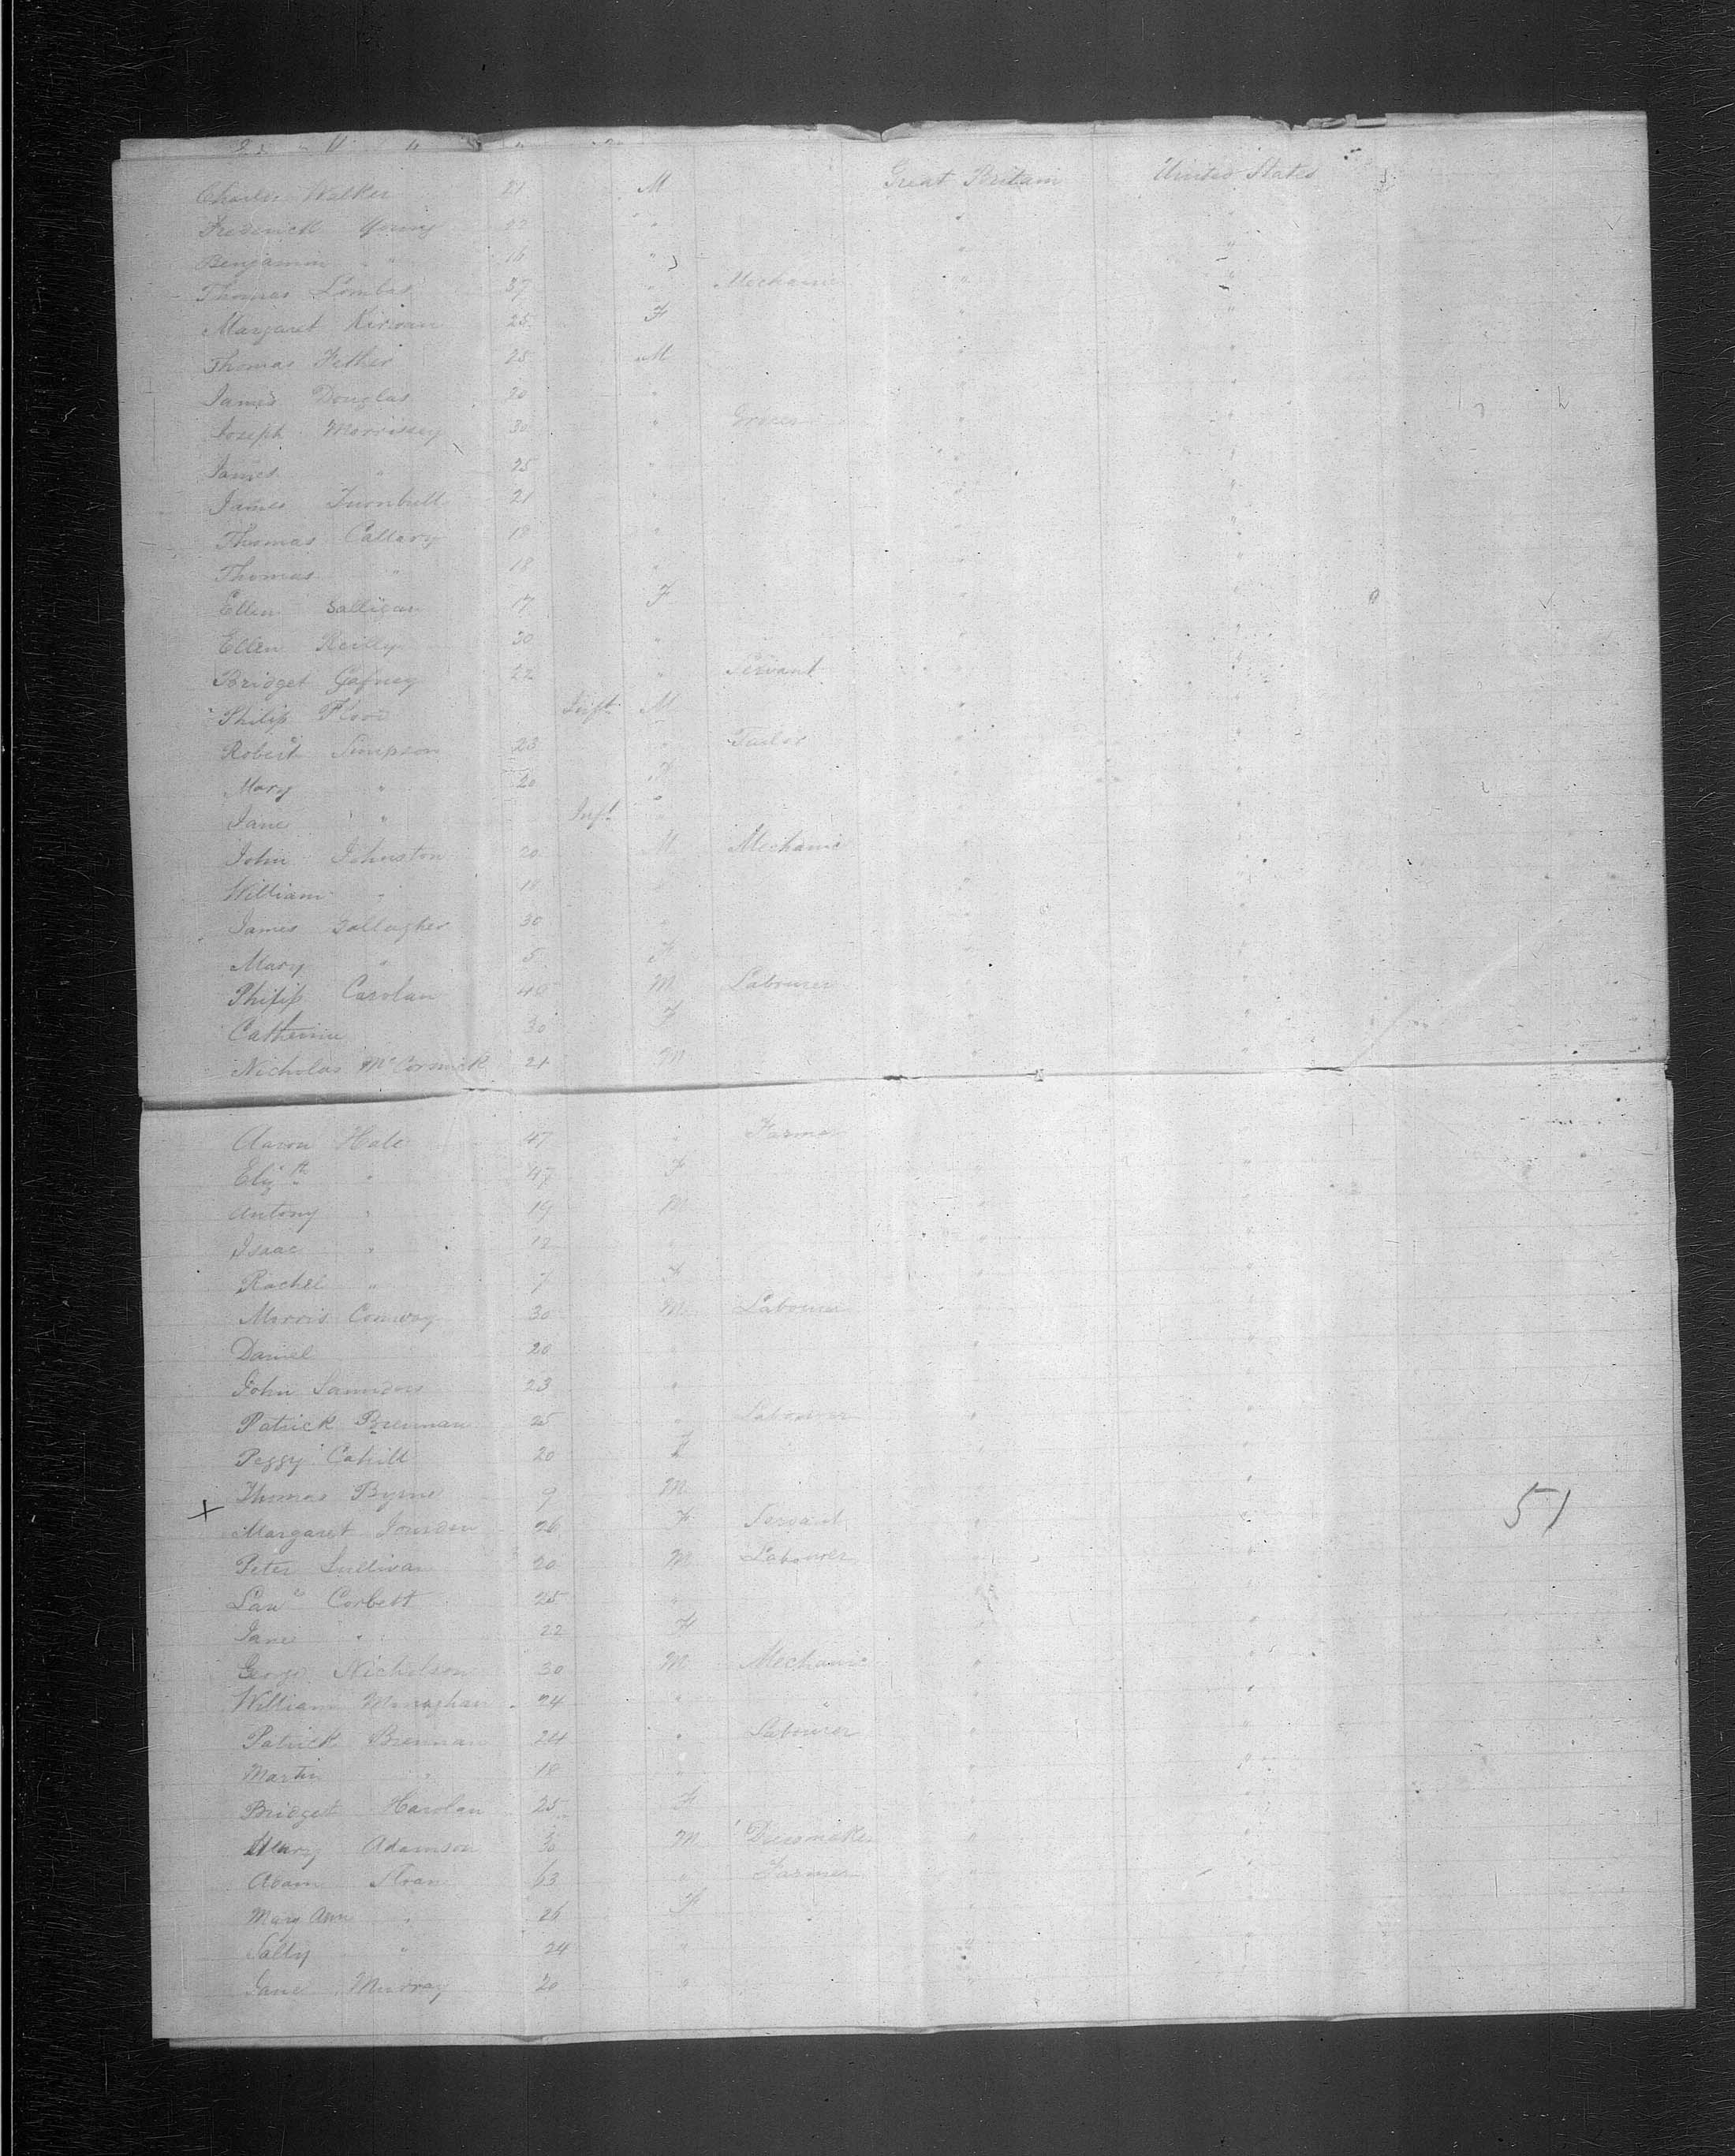 Charles Walker 21 M Great Britain United States
Frederick Young 22 "
Benjamin " 16 " " "
Thomas 37 " Mechanic " "
Margaret Kirwan 25 F "
Thomas Fether 25 M " "
James Douglas 20 " "
Joseph Morrissey 30 " Grocer " "
James " 25 " " "
James Turnbull 21 " " "
Thomas Callary 18 " " "
Thomas " 18 " " "
Ellen Galligan 17 F " "
Ellen Reilly 30 " " "
Bridget Gafney 22 " Servant " "
Philip Flood Inft M " "
Robert Simpson 23 " Tailor " "
Mary " 20 F " "
Jane " Inft " "
John Johnston 20 M Mechanic " "
William " 18 " " "
James Gallagher 30 " "
Mary " 5 F " "
Philip Carolan 40 M Labourer " "
Catherine 30 F " "
Nicholas McCormick 21 M " "
Aaron Hale 47 " Farmer
Elizth " 47 F "
Antony " 19 M " "
Isaac " 12 " " "
Rachel " 7 F " "
Morris Conway 30 M Labourer " "
Daniel 20 " " "
John Saunders 23 "
Patrick Brennan 25 " Labourer " "
Peggy Cahill 20 F " "
Thomas Byrne 9 M "
x Margaret 26 F Servant " " 51
Peter Sullivan 20 M Labourer " "
Lawce Corbett 25 " "
Jane " 22 F " "
George Nicholson 30 M Mechanic " "
William Monaghan 24 " " " "
Patrick Brennan 24 " Labourer " "
Martin " 18 " " "
Bridget Harolan 25 F " "
Adamson 30 M Dressmaker " "
Adam Sloan 63 " Farmer " "
Mary Ann " 26 F " "
Sally " 24 " " "
Jane Murray 20 " " "